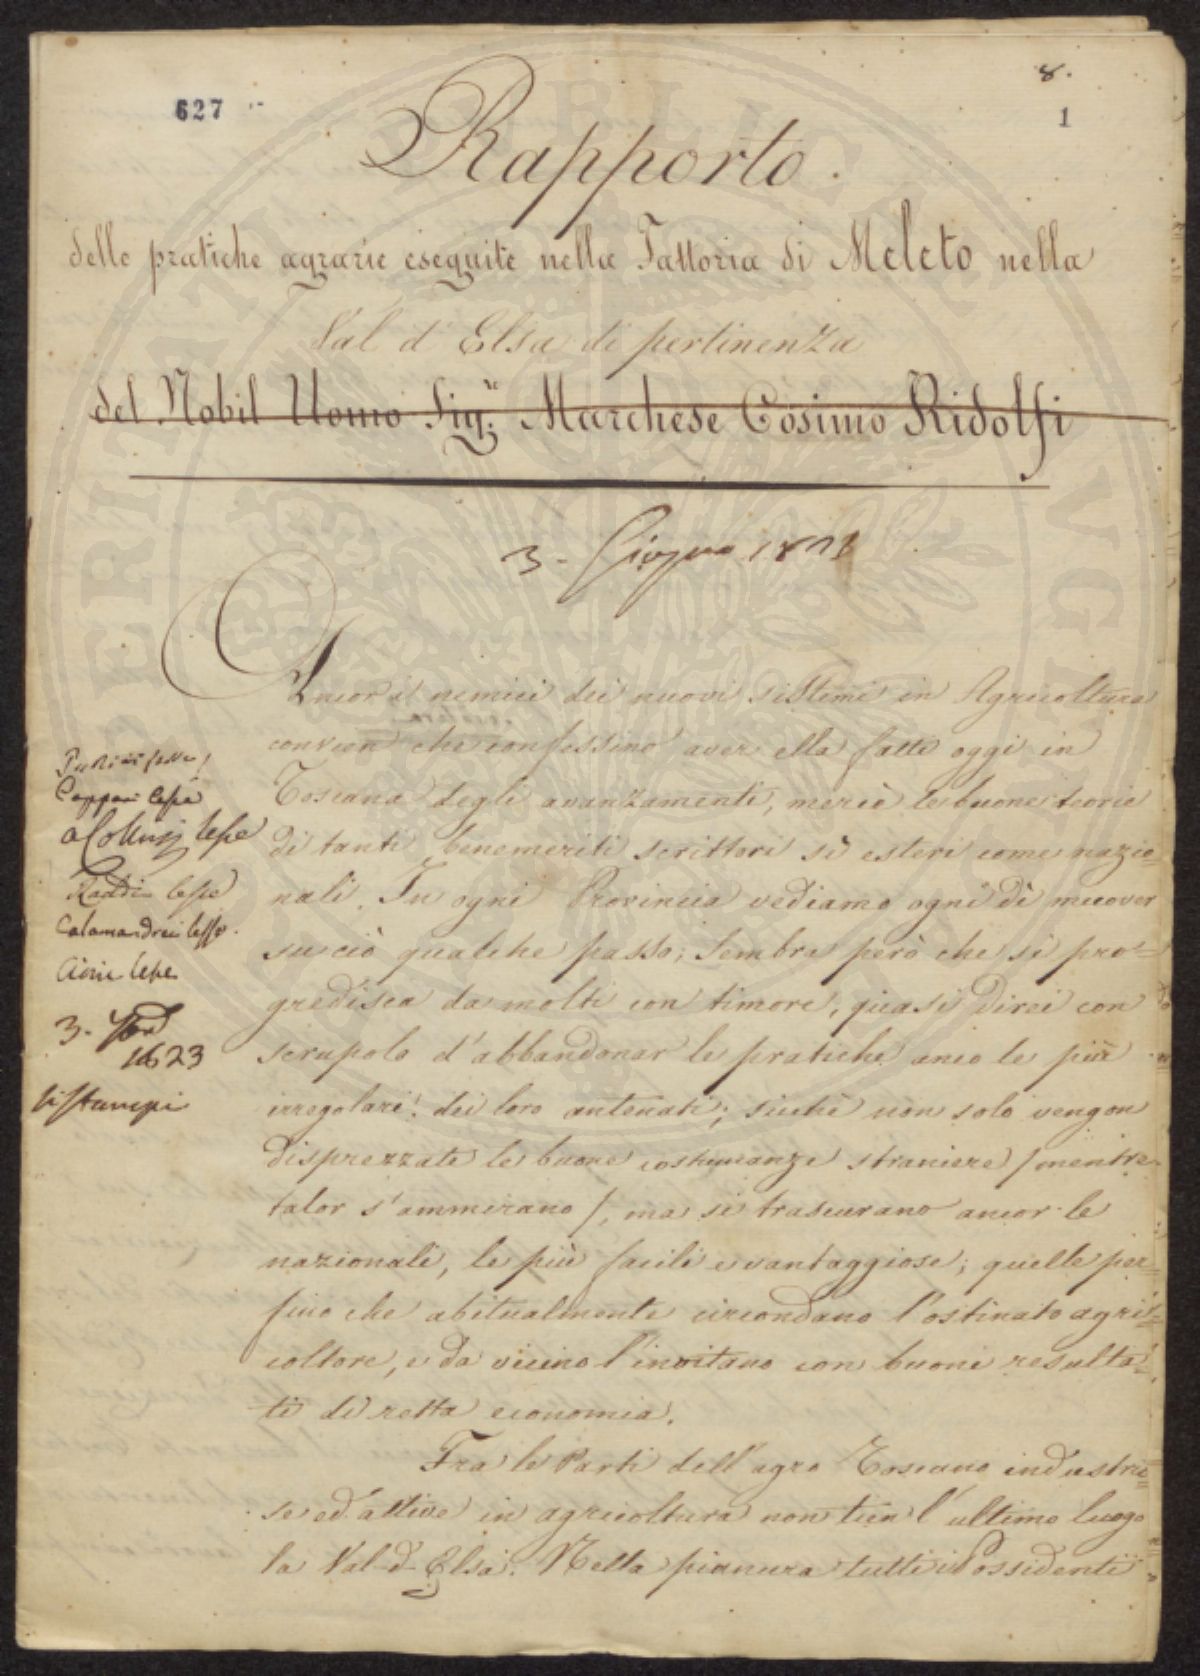 8.
627
1
Rapporto.
delle pratiche agrarie eseguite nella Fattoria di Meleto nella
Val d'Elsa di pertinenza
del Nobil Uomo Sigre. Marchese Cosimo Ridolfi
3 - Giugno
Ancor i nemici dei nuovi sistemi in Agricoltura
convien che confessino aver ella fatti oggi in
Toscana degli avanzamenti, mercè le buone teorie
di tanti benemeriti scrittori sì esteri come nazio=
nali. In ogni Provincia vediamo ogni dì muover
su ciò qualche passo; Sembra però che si pro=
gredisca da molti con timore, quasi direi con
scrupolo d'abbandonar le pratiche anco le più
irregolari dei loro antenati; sicchè non solo vengon
disprezzate le buone costumanze straniere / mentre
talor s'ammirano /, ma si trascurano ancor le
nazionali, le più facili e vantaggiose; quelle per=
fino che abitualmente circondano l'ostinato agri=
coltore, e da vicino l'invitano con buoni resulta=
ti di retta economia.
Fra le Parti dell'agro Toscano industrio=
se ed attive in agricoltura non tien l'ultimo luogo
la Val-d-Elsa. Nella pianura tutti i Possidenti
Cappari lesse
Raddi lesse
Calamandrei lesse.
lesse
3.
1823
si stampi
PERITATI PUBLICAE AUGENDAE